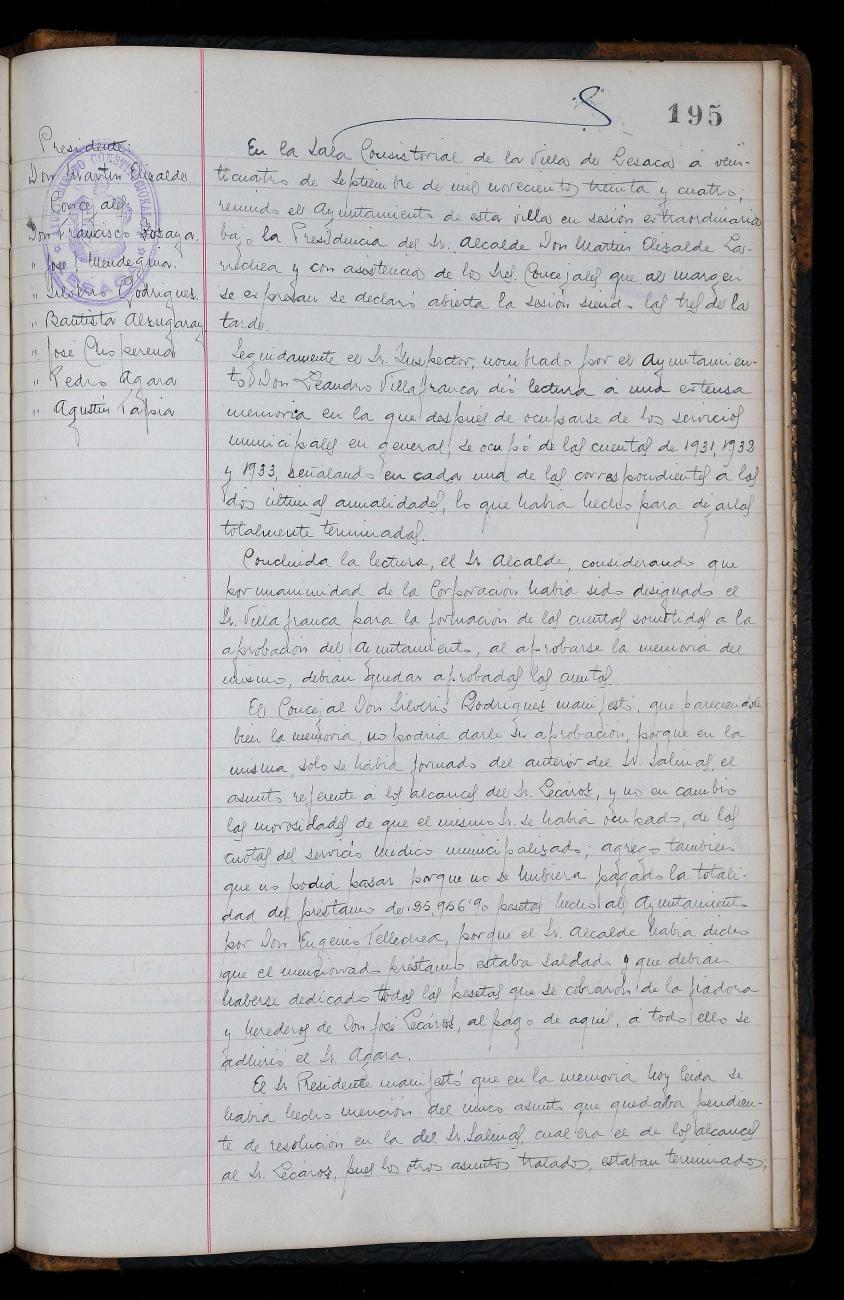 195
Presidente:
Don Martín Elizalde.
Concejales
Don Francisco Sosaya.
" José Mendeguia.
" Silverio Rodrigues.
" Bautista Alzugaray
" José Choperena
" Pedro Agara
" Agustín Tapia
AYUNTAMIENTO CONSTITUCIONAL
LESACA
En la Sala Consistorial de la Villa de Lesaca a vein-
ticuatro de Septiembre de mil novecientos treinta y cuatro;
reunido el Ayuntamiento de esta villa en sesión extraordinaria
bajo la Presidencia del Sr. Alcalde Don Martín Elizalde La-
rréchea y con asistencia de los Sres. Concejales que al margen
se expresan se declaró abierta la sesión siendo las tres de la
tarde.
Seguidamente el Sr. Inspector, nombrado por el Ayuntamien-
to, Don Leandro Villafranca dió lectura a una extensa
memoria en la que después de ocuparse de los servicios
municipales en general, se ocupó de las cuentas de 1931, 1932
y 1933, señalando en cada una de las correspondientes a las
dos últimas anualidades, lo que había hecho para dejarlas
totalmente terminadas.
Concluida la lectura, el Sr. Alcalde, considerando que
por unanimidad de la Corporación había sido designado el
Sr. Villafranca para la formación de las cuentas sometidas a la
aprobación del Ayuntamiento, al aprobarse la memoria del
mismo, debían quedar aprobadas las cuentas.
El Concejal Don Silverio Rodrigues manifestó, que pareciendole
bien la memoria, no podría darle su aprobación, porque en la
misma, solo se había formado del anterior del Sr. Salinas, el
asunto referente á los alcances del Sr. Lecároz, y no en cambio
las morosidades de que el mismo Sr. se había ocupado, de las
cuotas del servicio médico municipalizado; agregó tambien
que no podía pasar porque no se hubiera pagado la totali-
dad del prestamo de 25,956'90 pesetas hecho al Ayuntamiento
por Don Eugenio Tellechea, porque el Sr. Alcalde había dicho
que el mencionado préstamo estaba saldado y que debían
haberse dedicado todas las pesetas que se cobraron de la fiadora
y herederos de Don José Lecároz, al pago de aquél, á todo ello se
adhirió el Sr. Agara.
El Sr Presidente manifestó que en la memoria hoy leida se
había hecho mención del único asunto que quedaba pendien-
te de resolución en la del Sr. Salinas, cual era el de los alcances
al Sr. Lecároz, pues los otros asuntos tratados, estaban terminados;